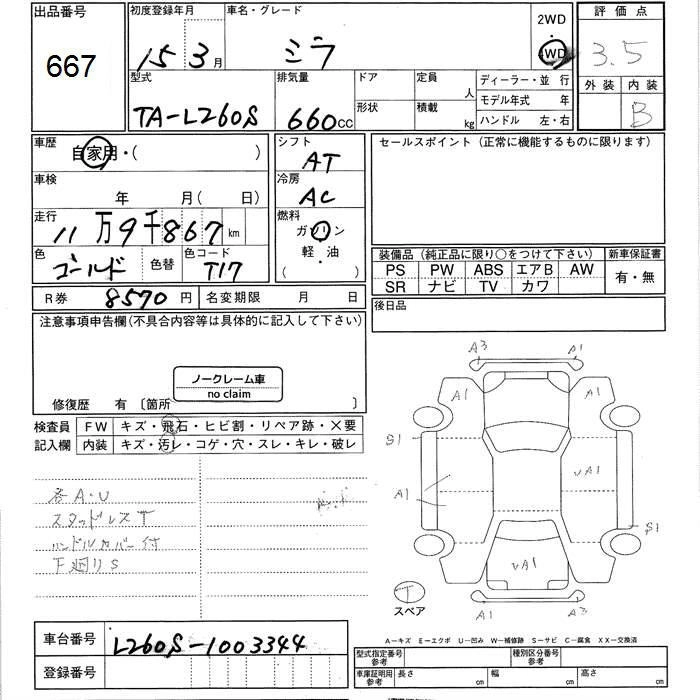 出品番号
667
初度登録年月
15 3月
車名・グレード
ミラ
2WD
4WD
評価点
3.5
外装 内装
B
型式
TA-L260S
排気量
660cc
ドア
形状
定員 人
積載 kg
ディーラー・並行
モデル年式 年
ハンドル 左・右
車歴
自家用・( )
車検
年 月( 日)
走行
11万9千867km
色
ゴールド
色替
色コード
T17
シフト
AT
冷房
AC
燃料
ガソリン
軽・油
( )
セールスポイント (正常に機能するものに限ります)
装備品 (純正品に限り○をつけて下さい)
PS PW ABS エアB AW
SR ナビ TV カワ
新車保証書
有・無
R券 8570円
名変期限 月 日
後日品
注意事項申告欄(不具合内容等は具体的に記入して下さい)
ノークレーム車
no claim
修復歴 有 〔箇所 〕
検査員
記入欄
FW キズ・飛石・ヒビ割・リペア跡・×要
内装 キズ・汚レ・コゲ・穴・スレ・キレ・破レ
各A・U
スタッドレスT
ハンドルカバー付
下廻りS
A3 A1
A1 A1
S1
A1
√A1
S1
√A1
A1 A1
T
スペア
A―キズ E―エクボ U―凹み W―補修跡 S―サビ C―腐食 XX―交換済
車台番号
L260S-1003344
登録番号
型式指定番号
参考
種別区分番号
参考
車庫証明用
参考
長さ cm
幅 cm
高さ cm